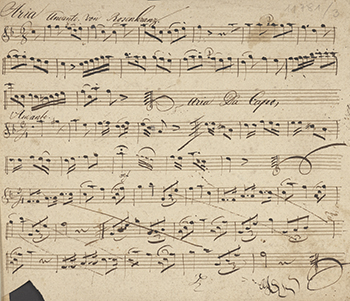 Aria Amante. von Rosenkranz.
Aria Da Capo.
Amante